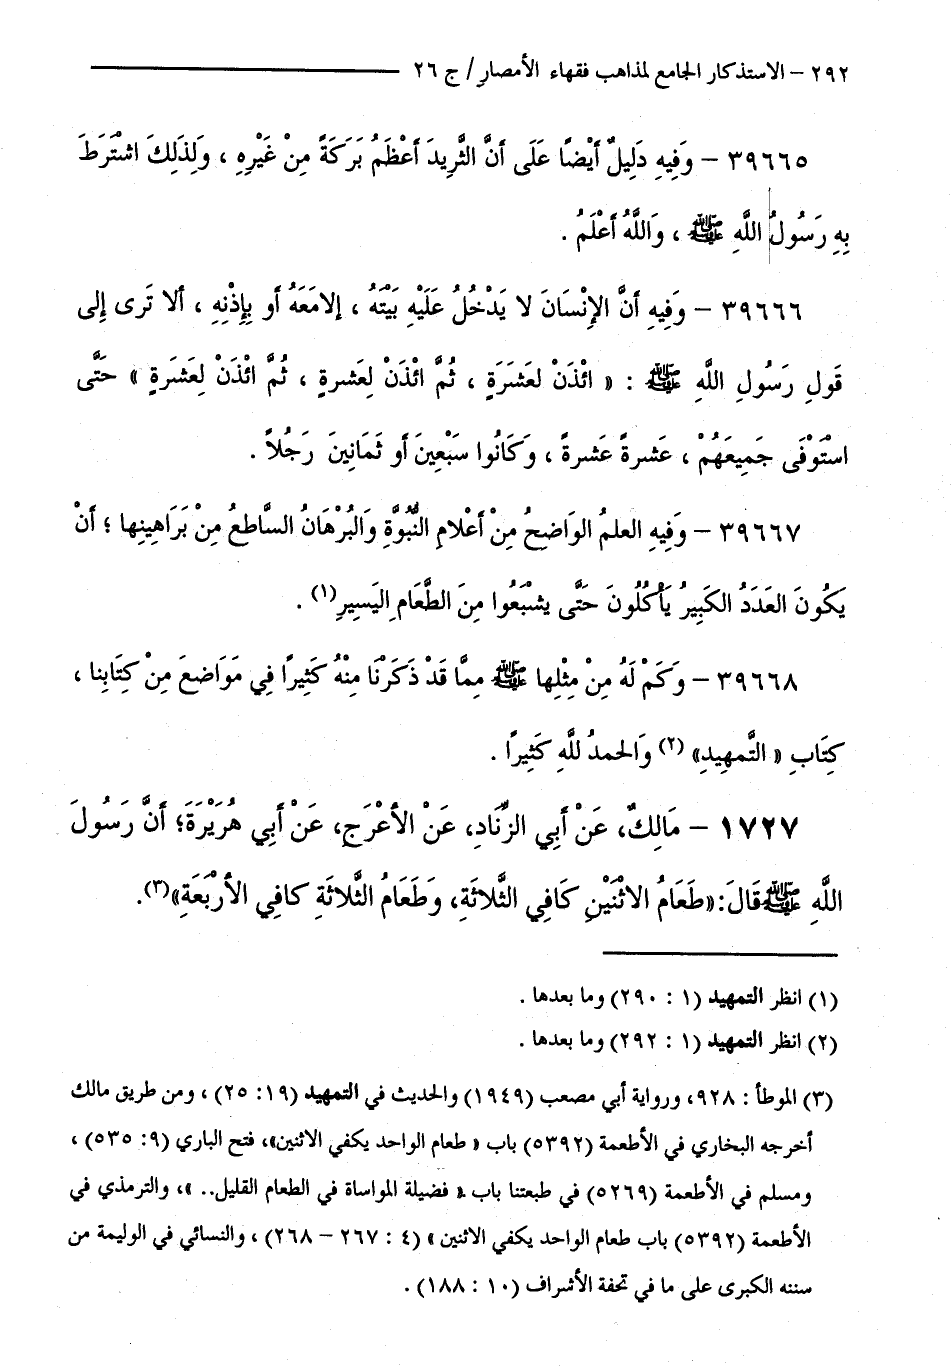 ٢٩٢ – الاستذكار الجامع لمذاهب فقهاء الأمصار / ج ٢٦
٣٩٦٦٥ – وَفِيهِ دَلِيلٌ أَيْضًا عَلَى أَنَّ الثَّرِيدَ أَعْظَمُ بَرَكَةً مِنْ غَيْرِهِ ، وَلِذَلِكَ اشْتَرَطَ
بِهِ رَسُولُ اللَّهِ ﷺ ، وَاللَّهُ أَعْلَمُ .
٣٩٦٦٦ – وَفِيهِ أَنَّ الإِنْسَانَ لا يَدْخُلُ عَلَيْهِ بَيْتَهُ ، إِلامَعَهُ أو بِإِذْنِهِ ، ألا تَرى إِلى
قَولِ رَسُولِ اللَّهِ ﷺ : « ائْذَنْ لعَشَرَةٍ ، ثُمَّ ائْذَنْ لِعَشرةٍ ، ثُمَّ ائْذَنْ لِعَشَرةٍ » حَتَّى
اسْتَوْفَى جَمِيعَهُمْ ، عَشرةً عَشرةً ، وَكَانُوا سَبْعِينَ أو ثَمَانِينَ رَجُلاً .
٣٩٦٦٧ – وَفِيهِ العلمُ الوَاضِحُ مِنْ أَعْلامِ النُّبُوَّةِ وَالبُرْهَانُ السَّاطعُ مِنْ بَرَاهِينِها ؛ أَنْ
يَكُونَ العَدَدُ الكَبِيرُ يَأْكُلُونَ حَتَّى يشْبَعُوا مِنَ الطَّعَامِ اليَسِيرِ(١) .
٣٩٦٦٨ – وَكَمْ لَهُ مِنْ مِثْلِها ﷺ مِمَّا قَدْ ذَكَرْنَا مِنْهُ كَثِيرًا فِي مَوَاضِعَ مِنْ كِتَابِنا ،
كِتَابِ « التَّمهِيدِ» (٢) وَالحمدُ للَّهِ كَثِيرًا .
١٧٢٧ – مَالِكٌ، عَنْ أَبِي الزِّنَادِ، عَنْ الأَعْرَجِ، عَنْ أَبِي هُرَيْرَةَ؛ أَنَّ رَسُولَ
اللَّهِ ﷺ قَالَ: «طَعَامُ الاثْنَيْنِ كَافِي الثَّلاثَةِ، وَطَعَامُ الثَّلاثَةِ كافِي الأَرْبَعَةِ»(٣).
(١) انظر التمهيد (١ : ٢٩٠) وما بعدها .
(٢) انظر التمهيد (١ : ٢٩٢) وما بعدها .
(٣) الموطأ : ٩٢٨، ورواية أبي مصعب (١٩٤٩) والحديث في التمهيد (١٩: ٢٥) ، ومن طريق مالك
أخرجه البخاري في الأطعمة (٥٣٩٢) باب « طعام الواحد يكفي الاثنين»، فتح الباري (٩: ٥٣٥) ،
ومسلم في الأطعمة (٥٢٦٩) في طبعتنا باب « فضيلة المواساة في الطعام القليل.. »، والترمذي في
الأطعمة (٥٣٩٢) باب طعام الواحد يكفي الاثنين » (٤ : ٢٦٧ – ٢٦٨) ، والنسائي في الوليمة من
سننه الكبرى على ما في تحفة الأشراف (١٠ : ١٨٨) .